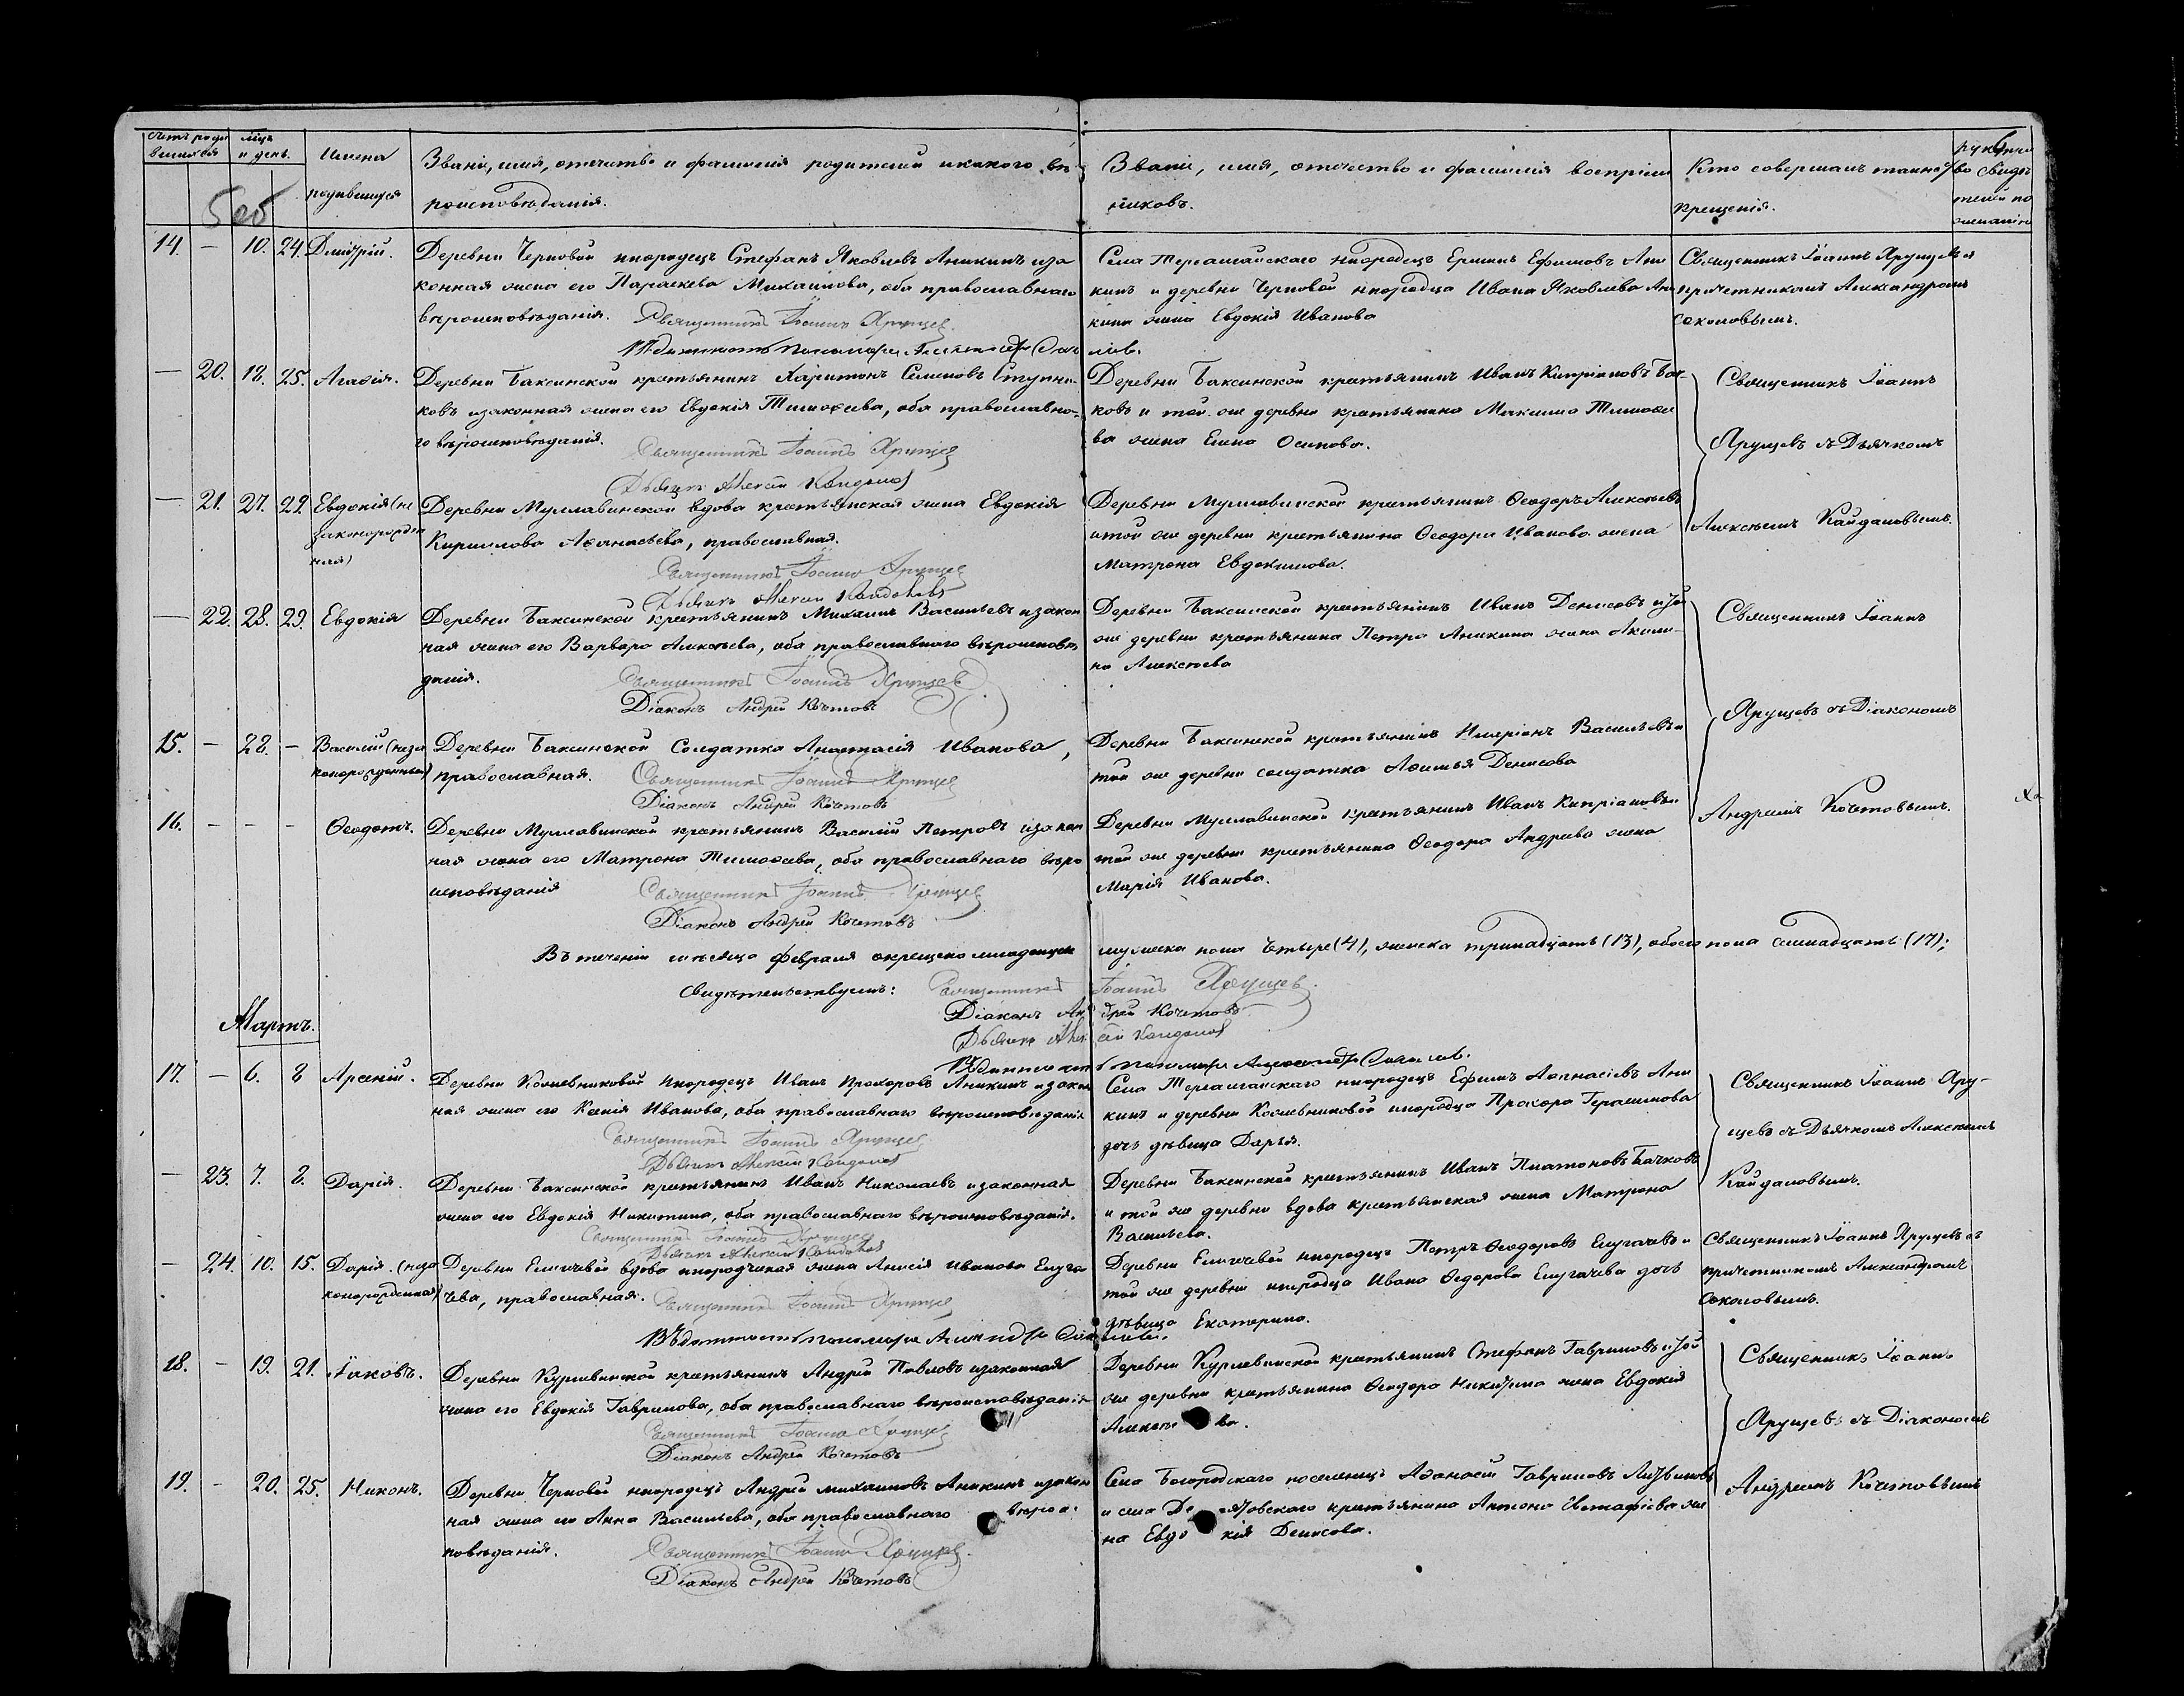 Счетъ роди мѣц.
вшихся и день. Имена
родившихся
Званіе, имя, отечество и фамилія родителей и какого вѣ
роисповѣданія.
Званіе, имя, отечество и фамилія воспріем
никовъ.
Кто совершалъ таинство
крещенія.
во свидѣ
телей по
желанію
14. — 10. 24. Димитрій. Деревни Черновой инородецъ Стефанъ Яковлевъ Аникинъ и за
конная жена его Параскева Михаилова, оба православнаго
вѣроисповѣданія. Священникъ Іоаннъ Ярущев.
Села Тергашайскаго инородецъ Ефимовъ Ани
кинъ и деревни Черновой инородца Ивана Яковлева Ани
кина жена Евдокія Иванова
Священникъ Іоаннъ Ярущевъ
причетникомъ Александромъ
Соколовымъ.
— 20. 18. 25. Агафія. Деревни Баксинской крестьянинъ Харитонъ Семеновъ Ступни-
ковъ и законная жена его Евдокія Тимофеева, оба православна-
го вѣроисповѣданія.
Священникъ Іоаннъ Ярущев
Дьячекъ Алексѣй Кайдалов
Деревни Баксинской крестьянинъ Иванъ Кипріановъ
ковъ и той же деревни крестьянина Максима Тимофе
ва жена Елена Осипова.
Священникъ Іоаннъ
Ярущевъ съ Дьячкомъ
Алексѣемъ Кайдаловымъ.
— 21. 27. 29. Евдокія (не
законорожден
ная)
Деревни Муллавинской вдова крестьянская жена Евдокія
Кирилова Афанасьева, православная.
Священникъ Іоаннъ Ярущев
Дьячекъ Алексѣй Кайдалов
Деревни Муллавинской крестьянинъ Ѳеодоръ Алексѣевъ
и той же деревни крестьянина Ѳеодора Иванова жена
Матрона Евдокимова.
— 22. 28. 29. Евдокія Деревни Баксинской крестьянинъ Михаилъ Васильевъ и закон
ная жена его Варвара Алексѣева, оба православнаго вѣроисповѣ
данія.
Священникъ Іоаннъ Ярущев
Діаконъ Андрей Кочетовъ
Деревни Баксинской крестьянинъ Иванъ Денисовъ и той
же деревни крестьянина Петра Аникина жена Акили-
на Алексѣева
Священникъ Іоаннъ
Ярущевъ съ Діакономъ
Андреемъ Кочетовымъ.
15. — 28. — Василій (неза
конорожденный)
Деревни Баксинской Солдатка Анастасія Иванова,
православная. Священникъ Іоаннъ Ярущев
Діаконъ Андрей Кочетовъ
Деревни Баксинской крестьянинъ Иларіонъ Васильевъ и
той же деревни солдатка Афимья Денисова
16. — — — Ѳеодотъ. Деревни Муллавинской крестьянинъ Василій Петровъ и закон
ная жена его Матрона Тимофеева, оба православнаго вѣро
исповѣданія Священникъ Іоаннъ Ярущев
Діаконъ Андрей Кочетовъ
Деревни Муллавинской крестьянинъ Иванъ Кипріановъ и
той же деревни крестьянина Ѳеодора Андреева жена
Марія Иванова.
Въ теченіи мѣсяца февраля окрещено младенцевъ мужеска пола четыре (4), женска тринадцать (13), обоего пола семнадцать (17);
Свидѣтельствуемъ: Священникъ Іоаннъ Ярущев.
Діаконъ Андрей Кочетовъ
Дьячекъ Алексѣй Кайдалов
Мартъ.
17. — 6. 8 Арсеній. Деревни Кожевниковой инородецъ Иванъ Прохоровъ Аникинъ и закон
ная жена его Ксенія Иванова, оба православнаго вѣроисповѣданія
Священникъ Іоаннъ Ярущев
Дьячекъ Алексѣй Кайдалов
Села Тергашайскаго инородецъ Ефимъ Афанасіевъ Ани
кинъ и деревни Кожевниковой инородца Прохора Герасимова
дочь дѣвица Дарья.
Священникъ Іоаннъ Яру-
щевъ съ Дьячкомъ Алексѣемъ
Кайдаловымъ.
— 23. 7. 8. Дарія. Деревни Баксинской крестьянинъ Иванъ Николаевъ и законная
жена его Евдокія Никитина, оба православнаго вѣроисповѣданія.
Священникъ Іоаннъ Ярущев
Дьячекъ Алексѣй Кайдалов
Деревни Баксинской крестьянинъ Иванъ Платоновъ Бачковъ
и той же деревни вдова крестьянская жена Матрона
Васильева.
— 24. 10. 15. Дарія. (неза
конорожденная)
Деревни Елгачевой вдова инородческая жена Анисія Иванова Елга
чева, православная. Священникъ Іоаннъ Ярущев
Деревни Елгачевой инородецъ Петръ Ѳеодоровъ Елгачевъ и
той же деревни инородца Ивана Ѳедорова Елгачева дочь
дѣвица Екатерина.
Священникъ Іоаннъ Ярущевъ съ
причетникомъ Александромъ
Соколовымъ.
18. — 19. 21. Іаковъ. Деревни Курлавинской крестьянинъ Андрей Павловъ и законная
жена его Евдокія Гаврилова, оба православнаго вѣроисповѣданія
Священникъ Іоаннъ Ярущев
Діаконъ Андрей Кочетовъ
Деревни Курлавинской крестьянинъ Стефанъ Гавриловъ и той
же деревни крестьянина Ѳеодора Никитина жена Евдокія
Алексѣ ва.
Священникъ Іоаннъ
Ярущевъ съ Діакономъ
Андреемъ Кочетовымъ
19. — 20. 25. Никонъ. Деревни Черновой инородецъ Андрей Михаиловъ Аникинъ и закон
ная жена его Анна Васильева, оба православнаго вѣроис
повѣданія. Священникъ Іоаннъ Ярущев.
Діаконъ Андрей Кочетовъ
Села Богородскаго поселенецъ Афанасій Гавриловъ Литвиновъ
и села крестьянина Антона Евстафіева же
на Евдо кія Денисова.